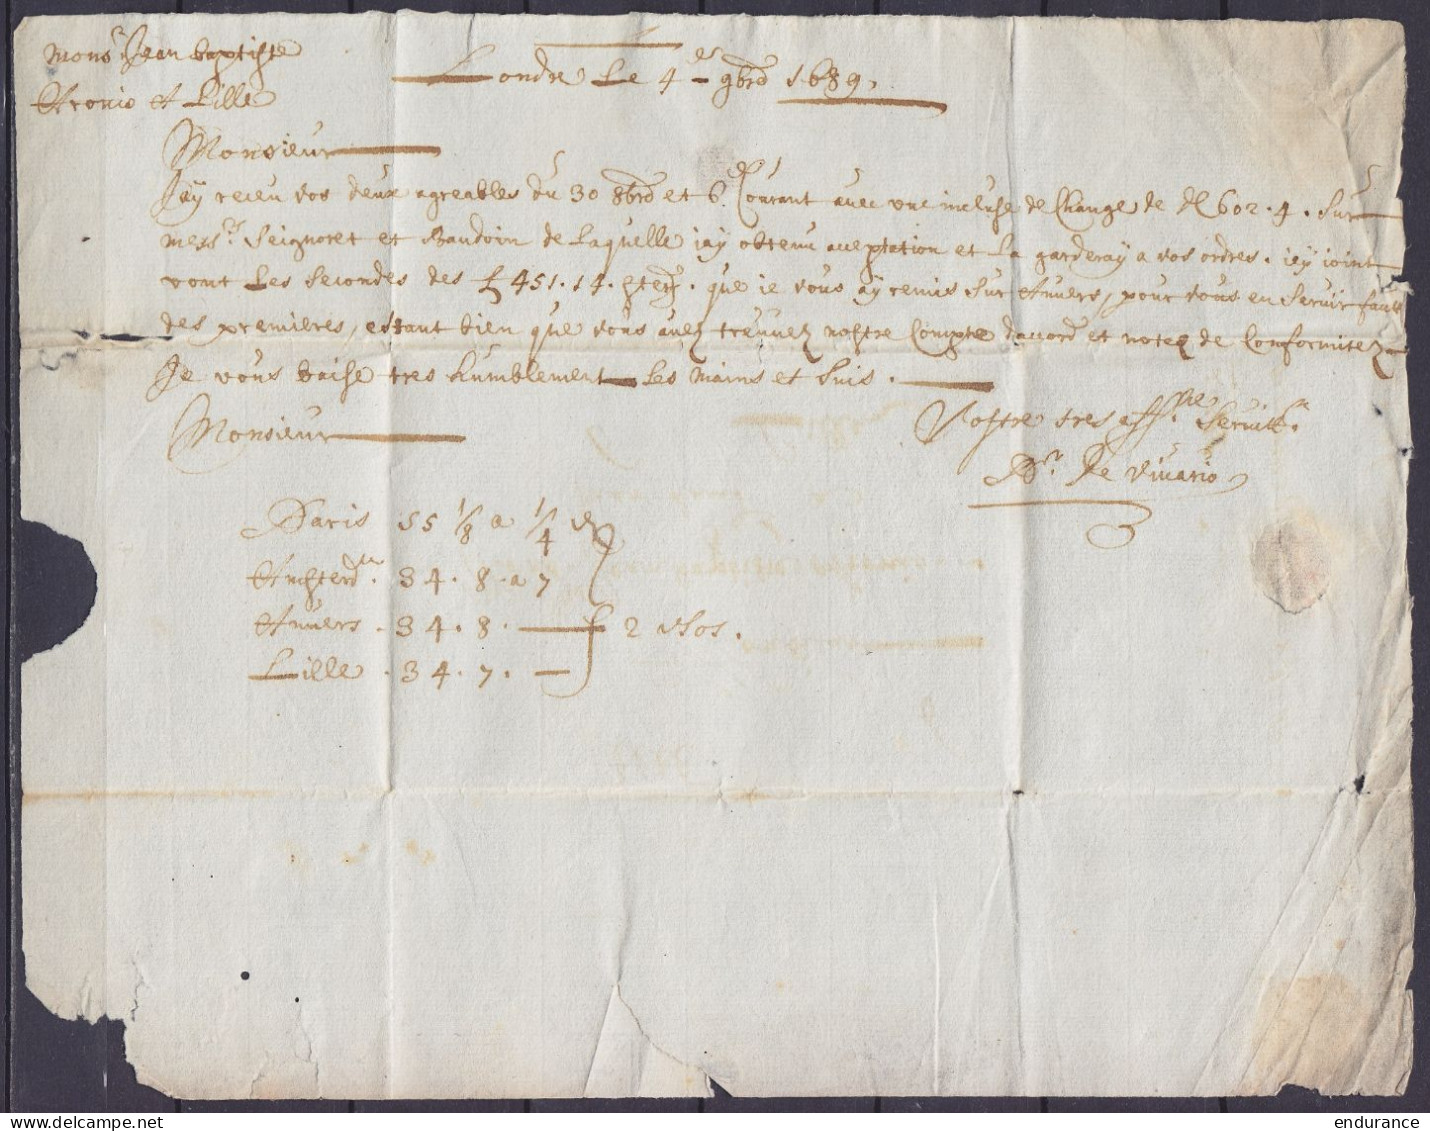 Mons.r Jean baptiste
Londre Le 4.e 9bre 1689,
A Lille
Monsieur
Jay receu vos deux agreables du 30 8bre et 6.e Courant avec une incluse de Change de 602.4. Sur
mess.rs Seignoret et Baudoin de laquelle jay obtenu aceptation et La garderay a vos ordres. icy joint
vont Les secondes des £ 451.14. que je vous ay remis Sur Anvers, pour vous en Servir fault
des premieres, estant bien que vous avez treuvez nostre Compte daccord et notez de Conformitez
Je vous baise tres humblement Les mains et suis.
Monsieur
Vostre tres aff.ne Servit.r
De Vivario
Paris 55 1/8 a 1/4
Amsterd.m 34.8.a 7
Anvers . 34.8. 2 Usos.
Lille . 34.7.
endurance